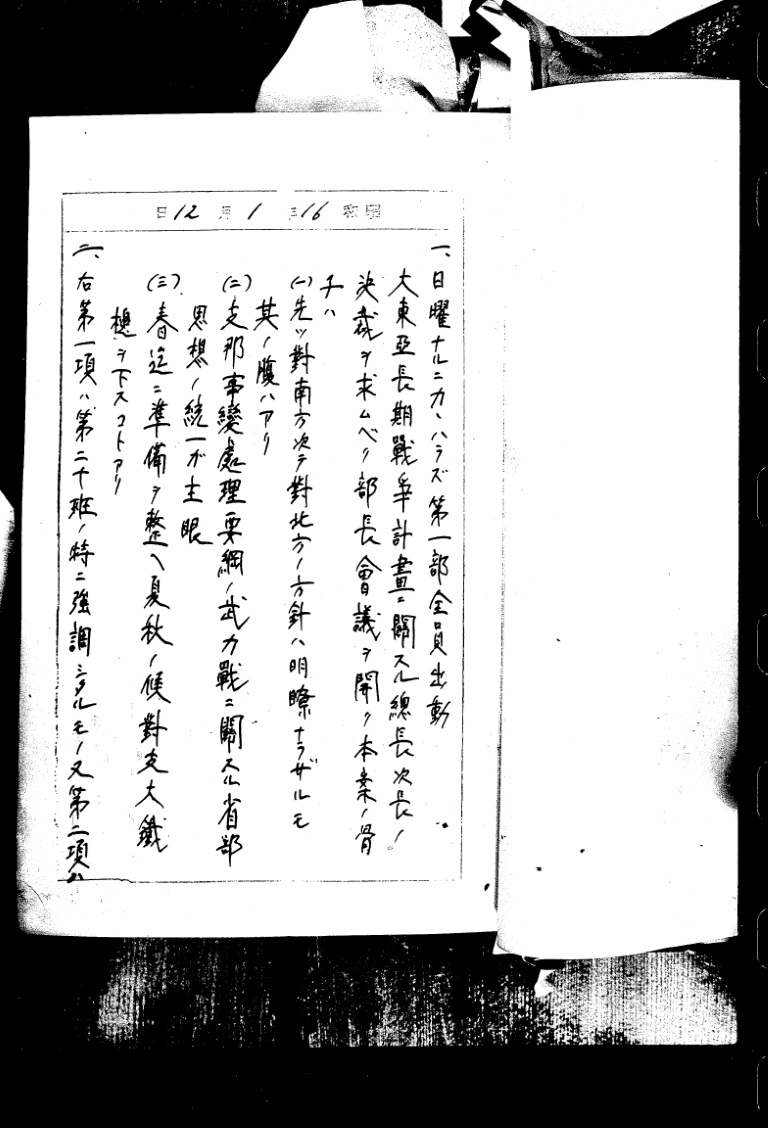 昭和16年1月12日
一、日曜ナルニカヽハラズ第一部全員出動
大東亞長期戰爭計畫ニ關スル總長次長ノ
決裁ヲ求ムベク部長會議ヲ開ク本案ノ骨
子ハ
(一)先ヅ對南方次テ對北方ノ方針ハ明瞭ナラザルモ
其ノ腹ハアリ
(二)支那事變處理要綱ノ武力戰ニ關スル省部
思想ノ統一ガ主眼
(三)春迄ニ準備ヲ整ヘ夏秋ノ候對支大鐵
槌ヲ下スコトアリ
二、右第一項ハ第二十班ノ特ニ強調シタルモノ又第二項ハ